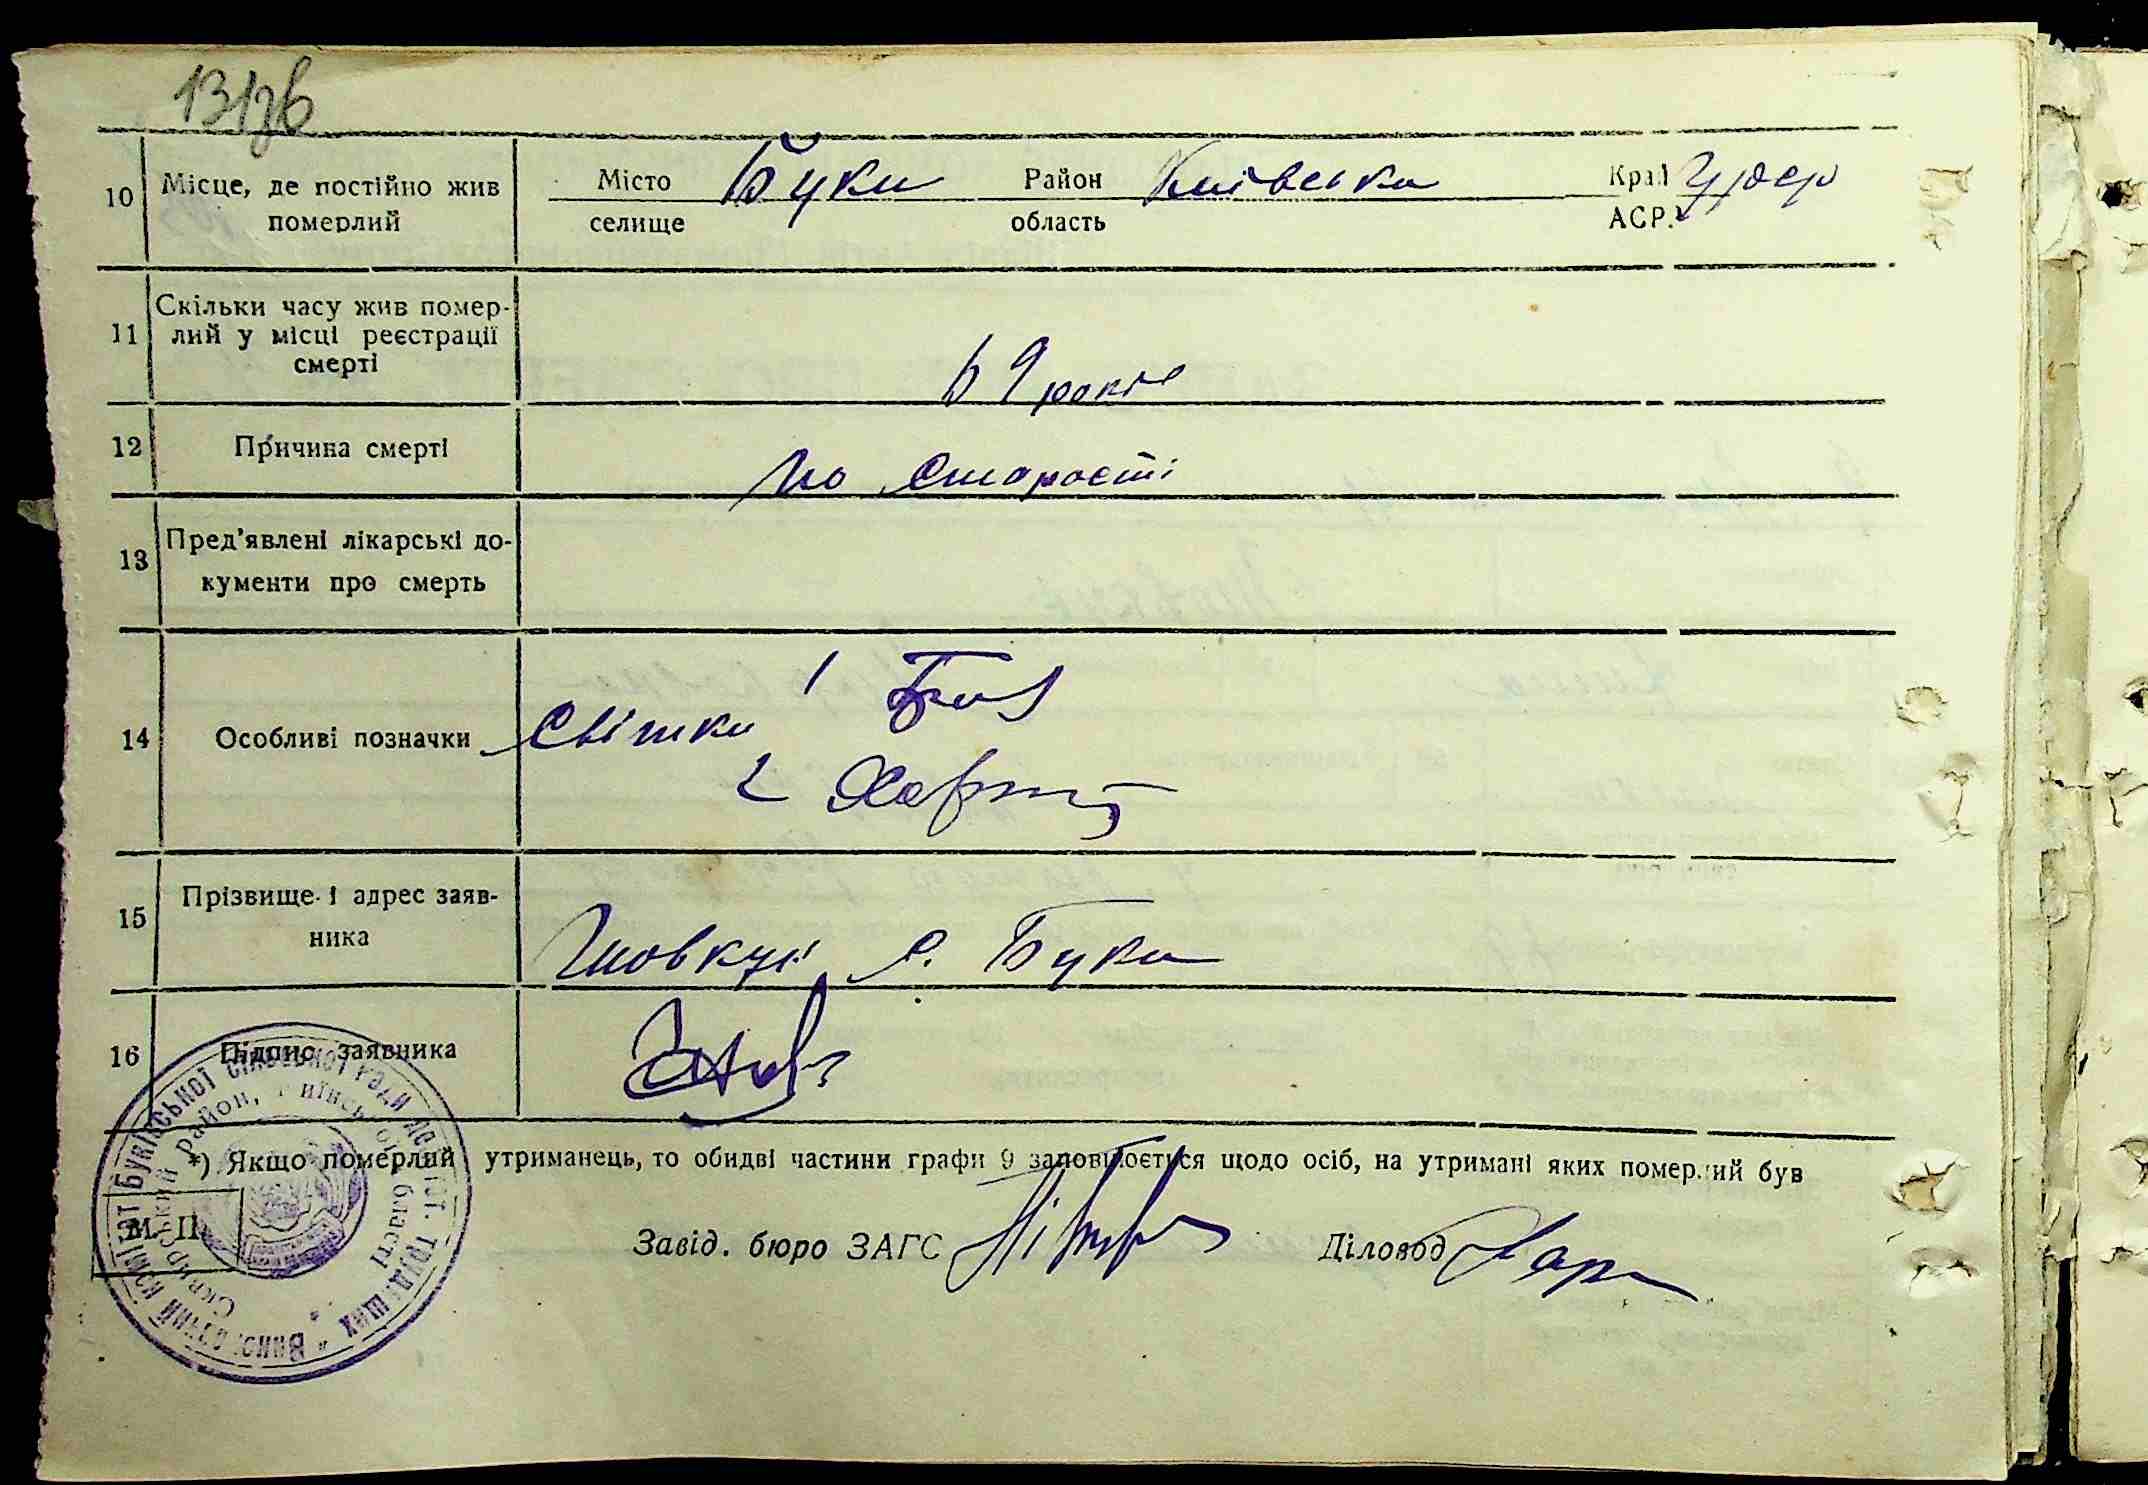 13176
10 Місце, де постійно жив померлий
Місто селище Буки Район область Київська Край АСР. УРСР
11 Скільки часу жив помер-
лий у місці реєстрації
смерті
69 років
12 Причина смерті По старості
13 Пред'явлені лікарські до-
кументи про смерть
14 Особливі позначки Свідки 1
2
15 Прізвище і адрес заяв-
ника
Шовкун с. Буки
16 Підпис заявника
*) Якщо померлий утриманець, то обидві частини графи 9 заповнюється щодо осіб, на утримані яких померлий був
М. П.
Завід. бюро ЗАГС Діловод
Виконавчий комітет Буківської сільської ради депут. трудящих
Сквирський район, Київської області